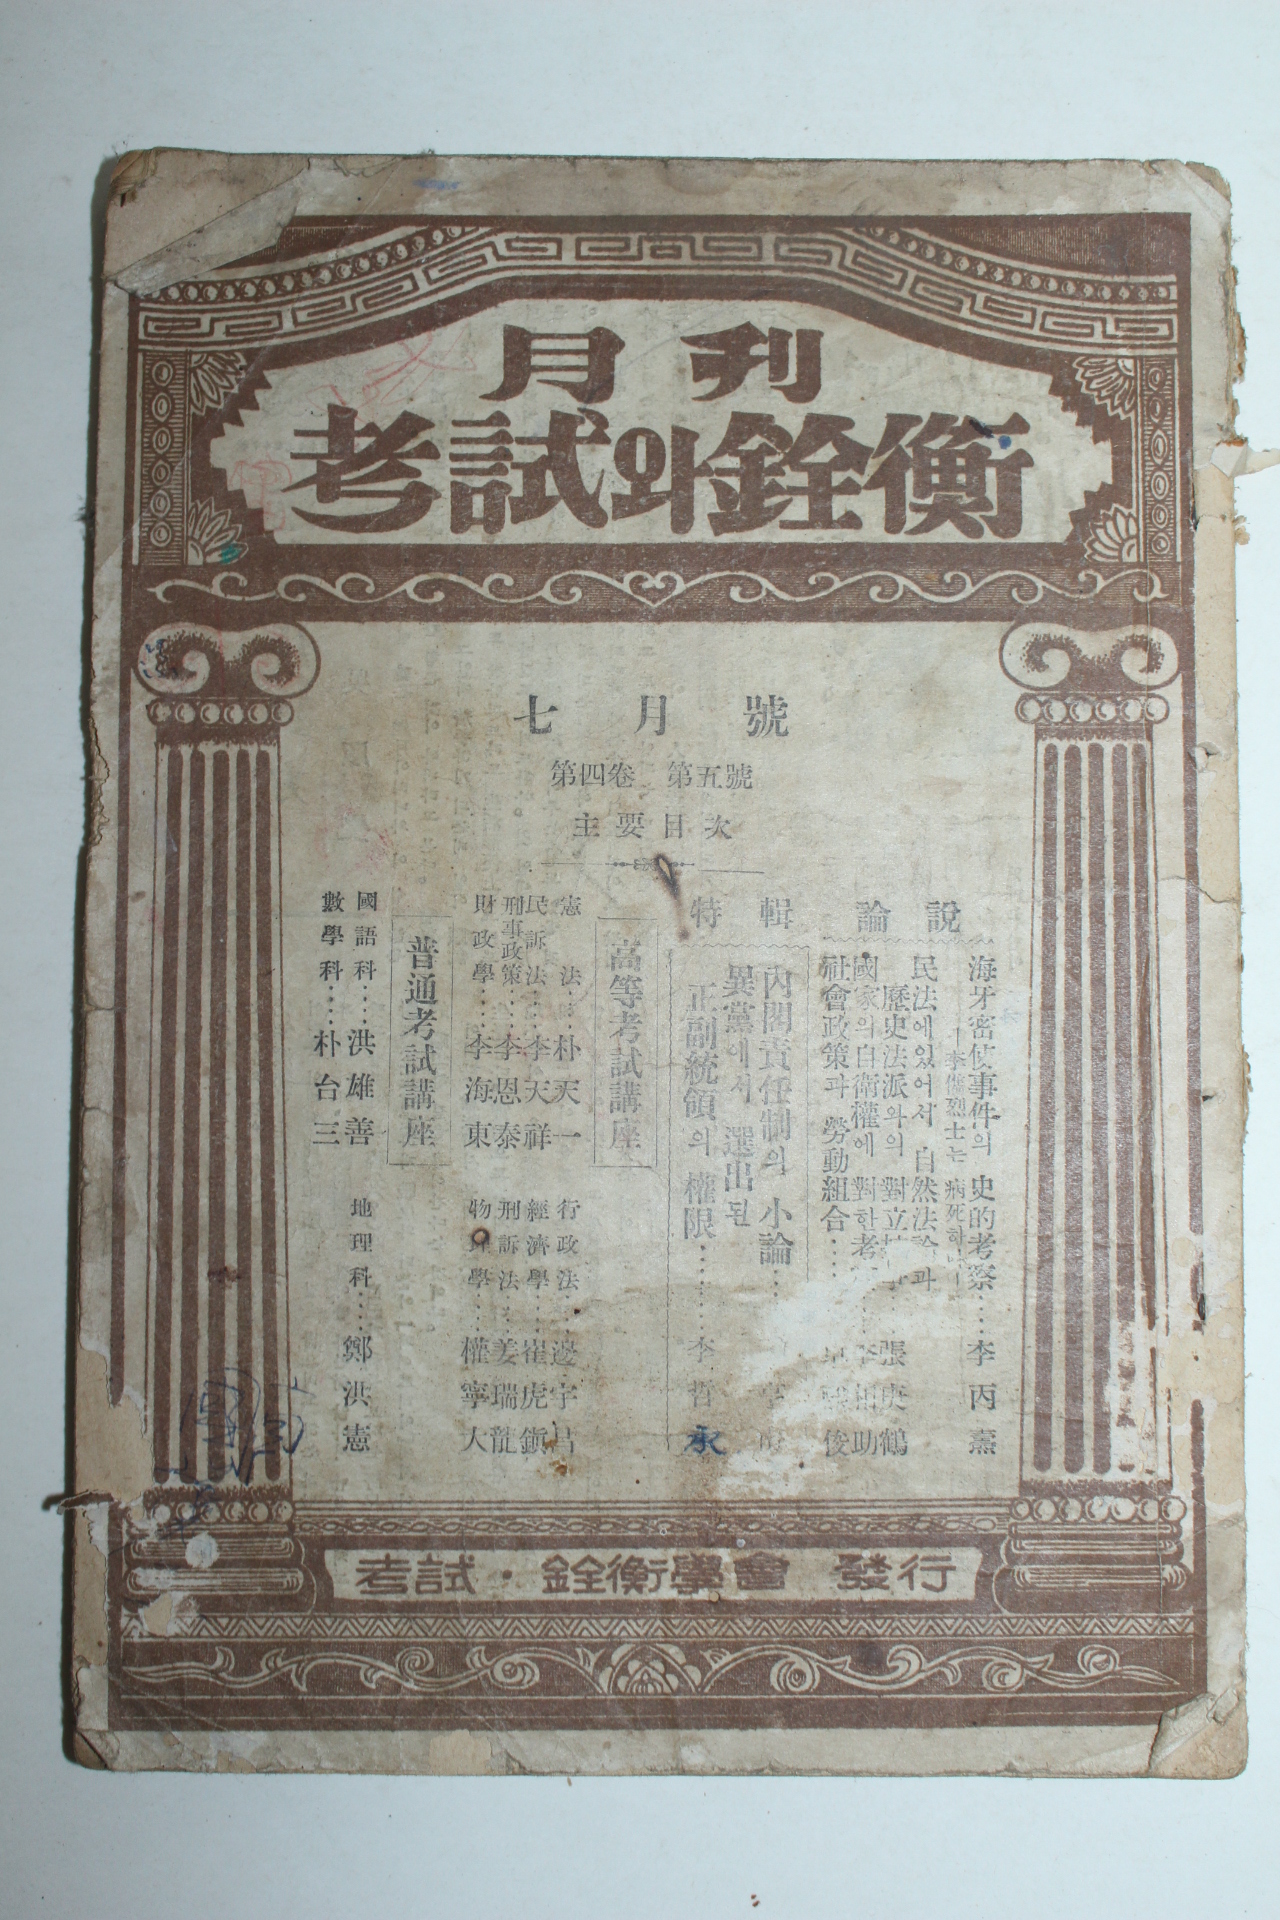 月刊
考試와銓衡
七月號
第四卷 第五號
主要目次
論說
海牙密使事件의 史的考察……李丙燾
民法에있어서 自然法論과
歷史法派와의 對立 張庚鶴
國家의自衛權에 對한 助
社會政策과 勞動組合…… 俊
特輯
內閣責任制의 小論……
異黨에서 選出된
正副統領의 權限………李哲承
高等考試講座
憲法…朴天一 行政法…邊宇昌
民訴法…李天祥 經濟學…崔虎鎭
刑事政策…李恩泰 刑訴法…姜瑞龍
財政學…李海東 學…權寧大
普通考試講座
國語科…洪雄善 地理科…鄭洪憲
數學科…朴台三
考試·銓衡學會 發行